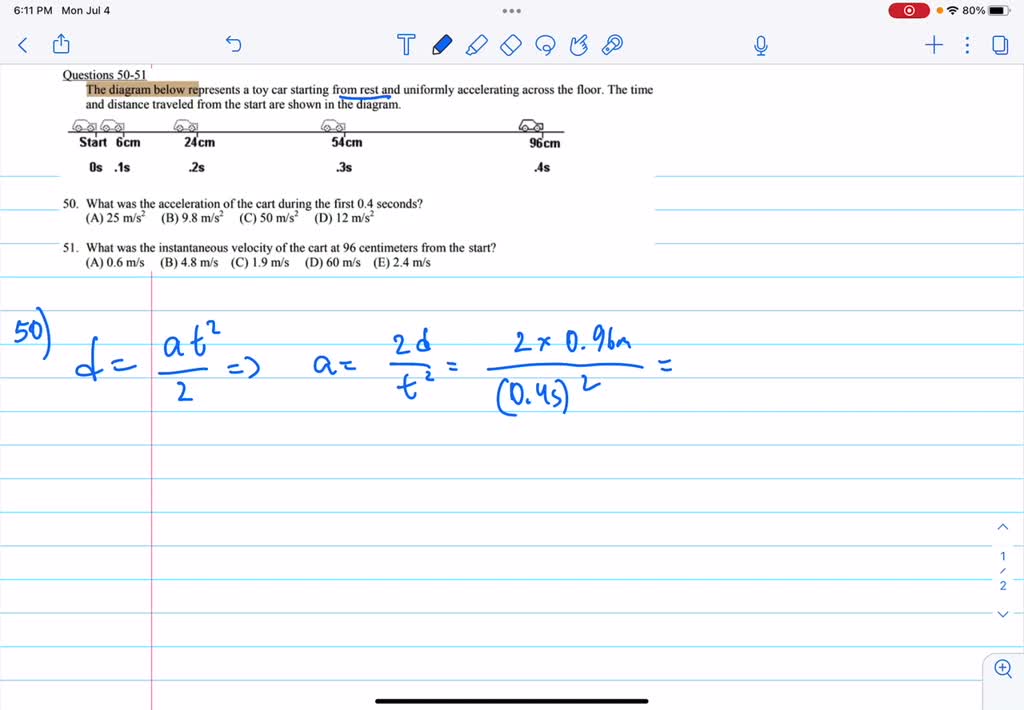 6:11 PM Mon Jul 4
80%
Questions 50-51
The diagram below represents a toy car starting from rest and uniformly accelerating across the floor. The time
and distance traveled from the start are shown in the diagram.
Start 6cm 24cm 54cm 96cm
0s .1s .2s .3s .4s
50. What was the acceleration of the cart during the first 0.4 seconds?
(A) 25 m/s² (B) 9.8 m/s² (C) 50 m/s² (D) 12 m/s²
51. What was the instantaneous velocity of the cart at 96 centimeters from the start?
(A) 0.6 m/s (B) 4.8 m/s (C) 1.9 m/s (D) 60 m/s (E) 2.4 m/s
50) d = at²/2 => a = 2d/t² = 2 x 0.96m/(0.4s)² =
1
/
2